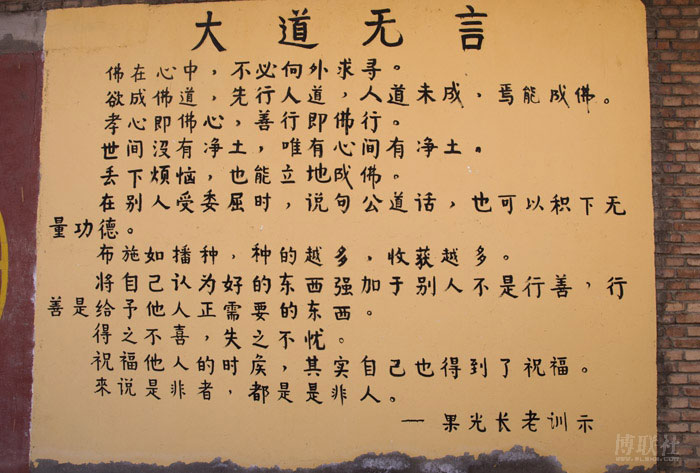 大道无言
佛在心中，不必向外求寻。
欲成佛道，先行人道，人道未成，焉能成佛。
孝心即佛心，善行即佛行。
世间没有净土，唯有心间有净土。
丢下烦恼，也能立地成佛。
在别人受委屈时，说句公道话，也可以积下无
量功德。
布施如播种，种的越多，收获越多。
将自己认为好的东西强加于别人不是行善，行
善是给予他人正需要的东西。
得之不喜，失之不忧。
祝福他人的时候，其实自己也得到了祝福。
來说是非者，都是是非人。
—果光长老训示
博联社